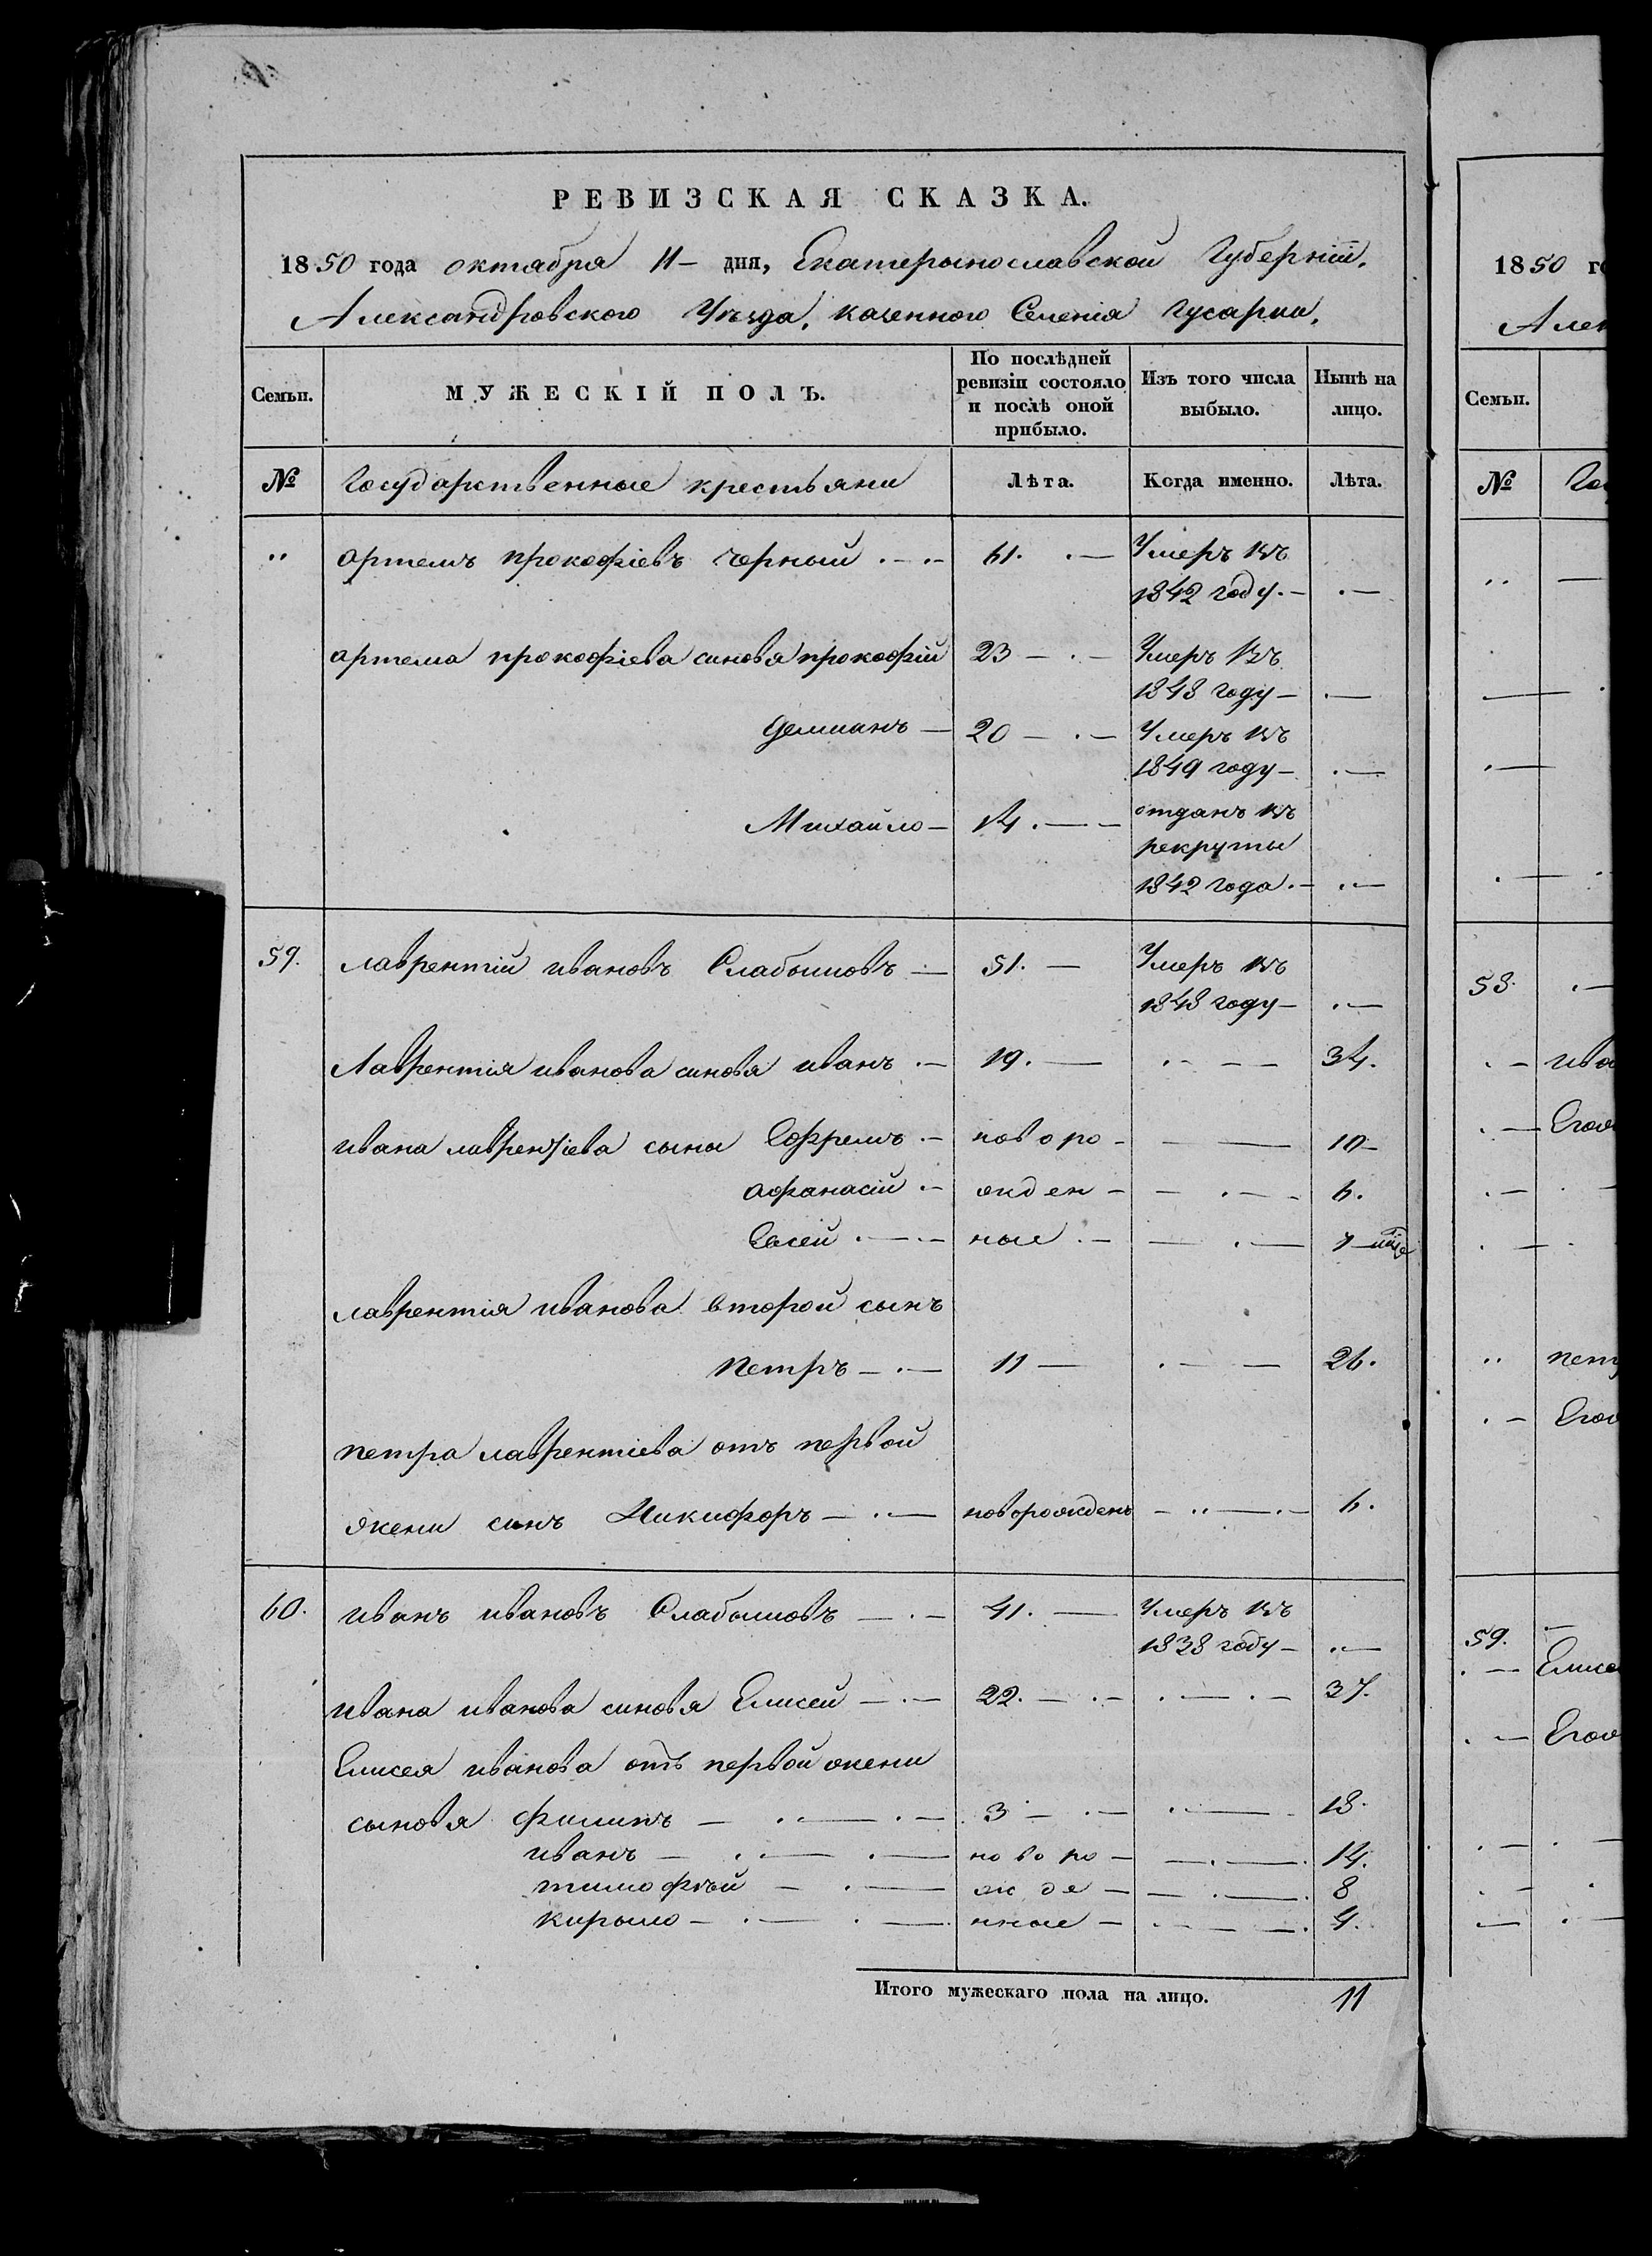 РЕВИЗСКАЯ СКАЗКА.
1850 года октабря 11 – дня, Екатерынославской Губерніи,
Александровского Уѣзда, казенного Селенія Гусарки,
Семьи. МУЖЕСКІЙ ПОЛЪ. По послѣдней ревизіи состояло и послѣ оной прибыло. Изъ того числа выбыло. Нынѣ на лицо.
№ Государственные крестьяни Лѣта. Когда именно. Лѣта.
" артемъ прокофіевъ Черный 61. Умеръ въ
1842 году.
артема прокофіева синовя прокофій 23 Умеръ въ
1848 году
Демианъ 20 Умеръ въ
1849 году
Михайло 14. отданъ въ
рекруты
1842 года.
59. лаврентій ивановъ 51. Умеръ въ
1848 году
Лаврентія иванова синовя иванъ 19. 34.
ивана лаврентіева сыны Ефремъ новоро 10
афанасій жден 6.
ные 7
лаврентія иванова второй сынъ
петръ 11 26.
петра лаврентіева отъ первой
жени синъ Никифоръ новорожденъ 6.
60. иванъ ивановъ 41. Умеръ въ
1838 году
ивана иванова синовя Елисей 22. 37.
Елисея иванова отъ первой жени
сыновя филипъ 3 18.
иванъ новоро 14.
тимофѣй жде 8
кирыло нные 4.
Итого мужескаго пола на лицо. 11
1850 го
Алек
Семьи.
№ Го
58.
ива
Егов
петр
Егов
59.
Елисе
Егов